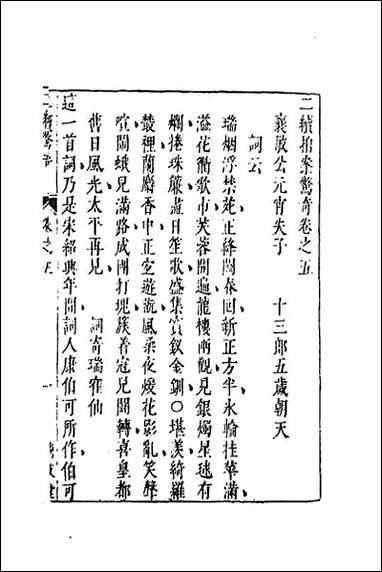 二續拍案驚奇卷之五
襄敏公元宵失子　十三郎五歲朝天
詞云
瑞烟浮禁苑正絳闕春回新正方半氷輪桂華滿
溢花衢歌市芙蓉開遍龍樓兩觀見銀燭星毬有
爛捲珠簾盡日笙歌盛集寶釵金釧○堪羡綺羅
叢裡蘭麝香中正宜遊翫風柔夜煖花影亂笑聲
喧鬧蛾兒滿路成團打塊簇着冠兒鬬轉喜皇都
舊日風光太平再見　詞寄瑞寉仙
這一首詞乃是宋紹興年間詞人康伯可所作伯可
二續驚奇
卷之五
一